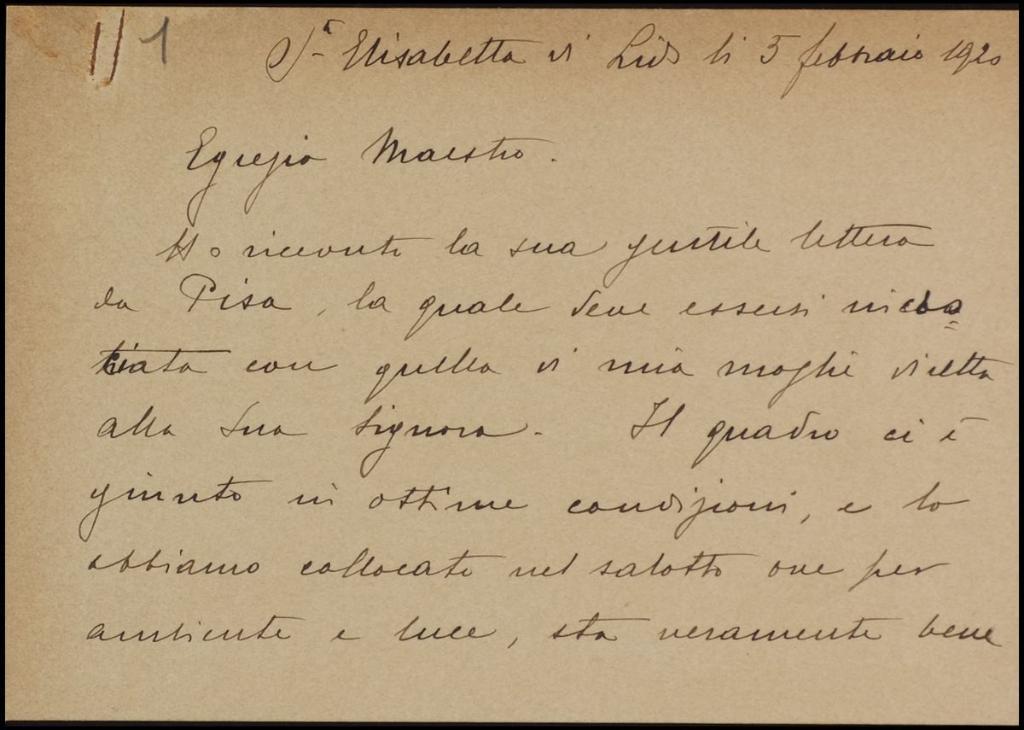 1/ 1
Sª Elisabetta di Lido li 5 febbraio 1920
Egregio Maestro.
Ho ricevuto la sua gentile lettera
da Pisa, la quale deve essersi incro=
ciata con quella di mia moglie diretta
alla Sua Signora. Il quadro ci è
giunto in ottime condizioni, e lo
abbiamo collocato nel salotto ove per
ambiente e luce, sta veramente bene